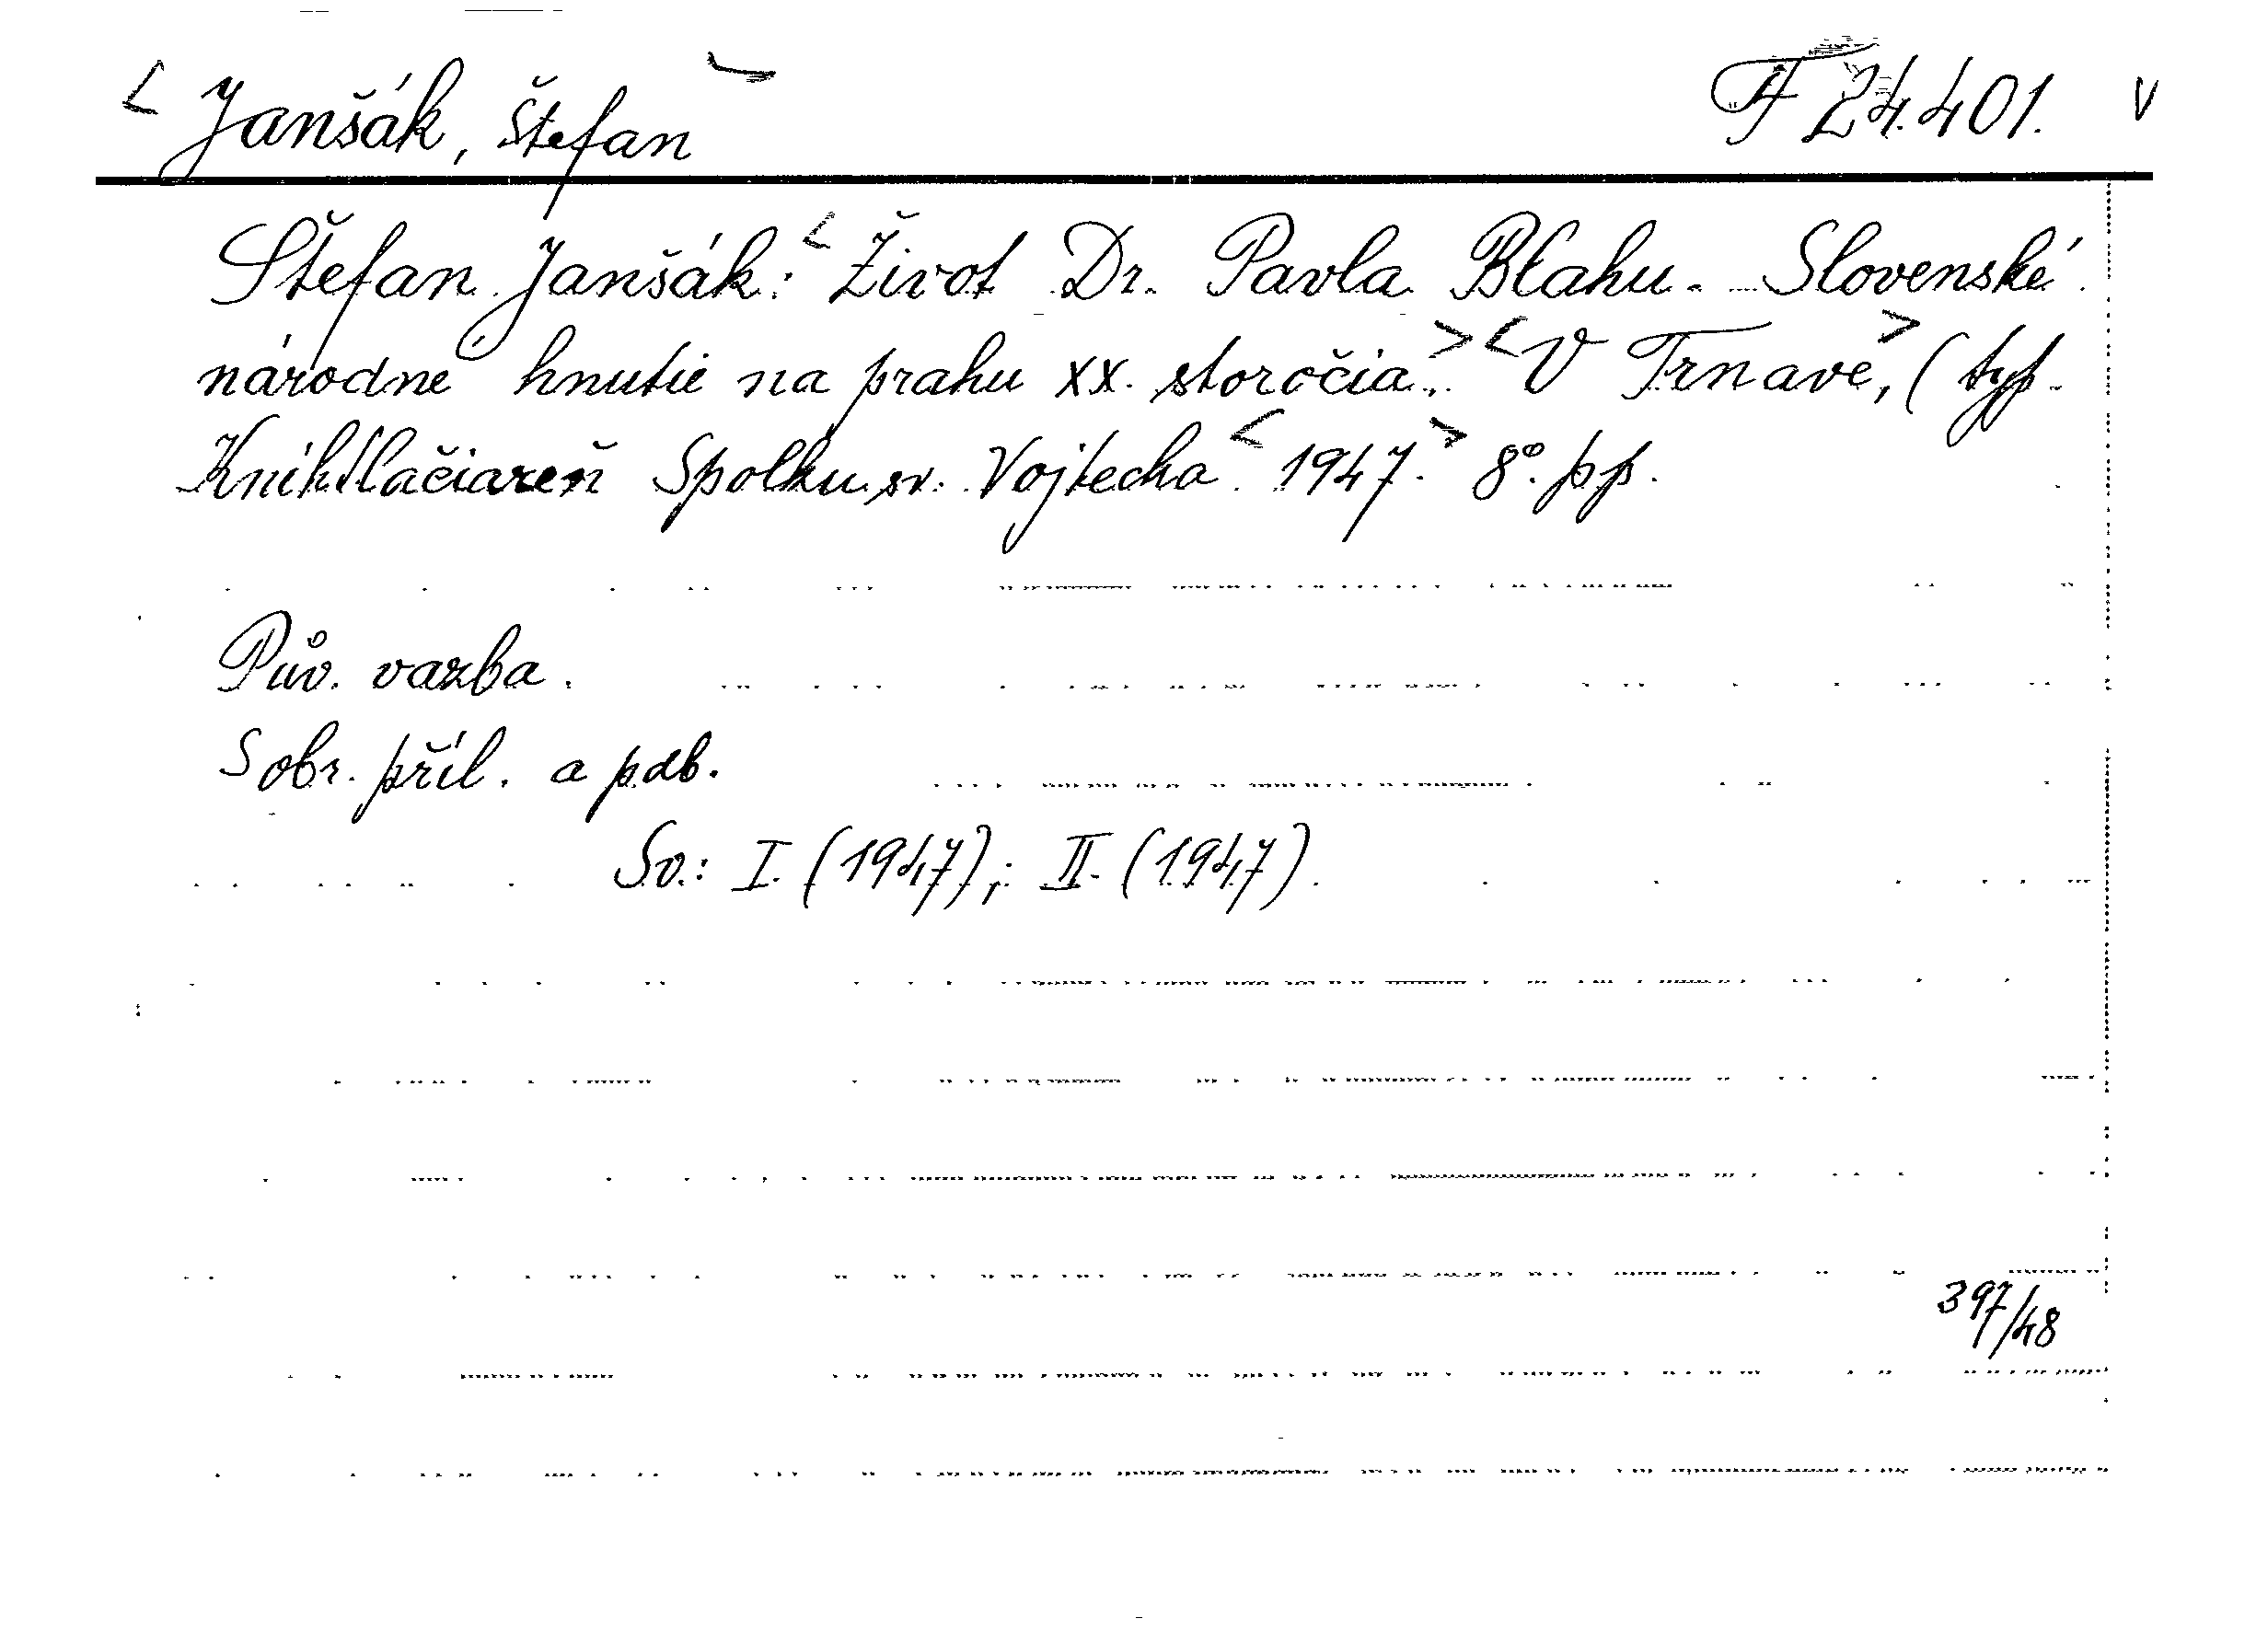 < Janšák, Štefan > F 24.401. v
Štefan Janšák: < Život Dr. Pavla Blahu. Slovenské
národné hnutie na prahu XX. storočia. > < V Trnavě, > (typ.
Knihtlačiareň Spolku sv. Vojtecha < 1947. > 8°. pp.
Pův. vazba.
S obr. příl. a pdb.
Sv.: I. (1947); II. (1947).
397/48